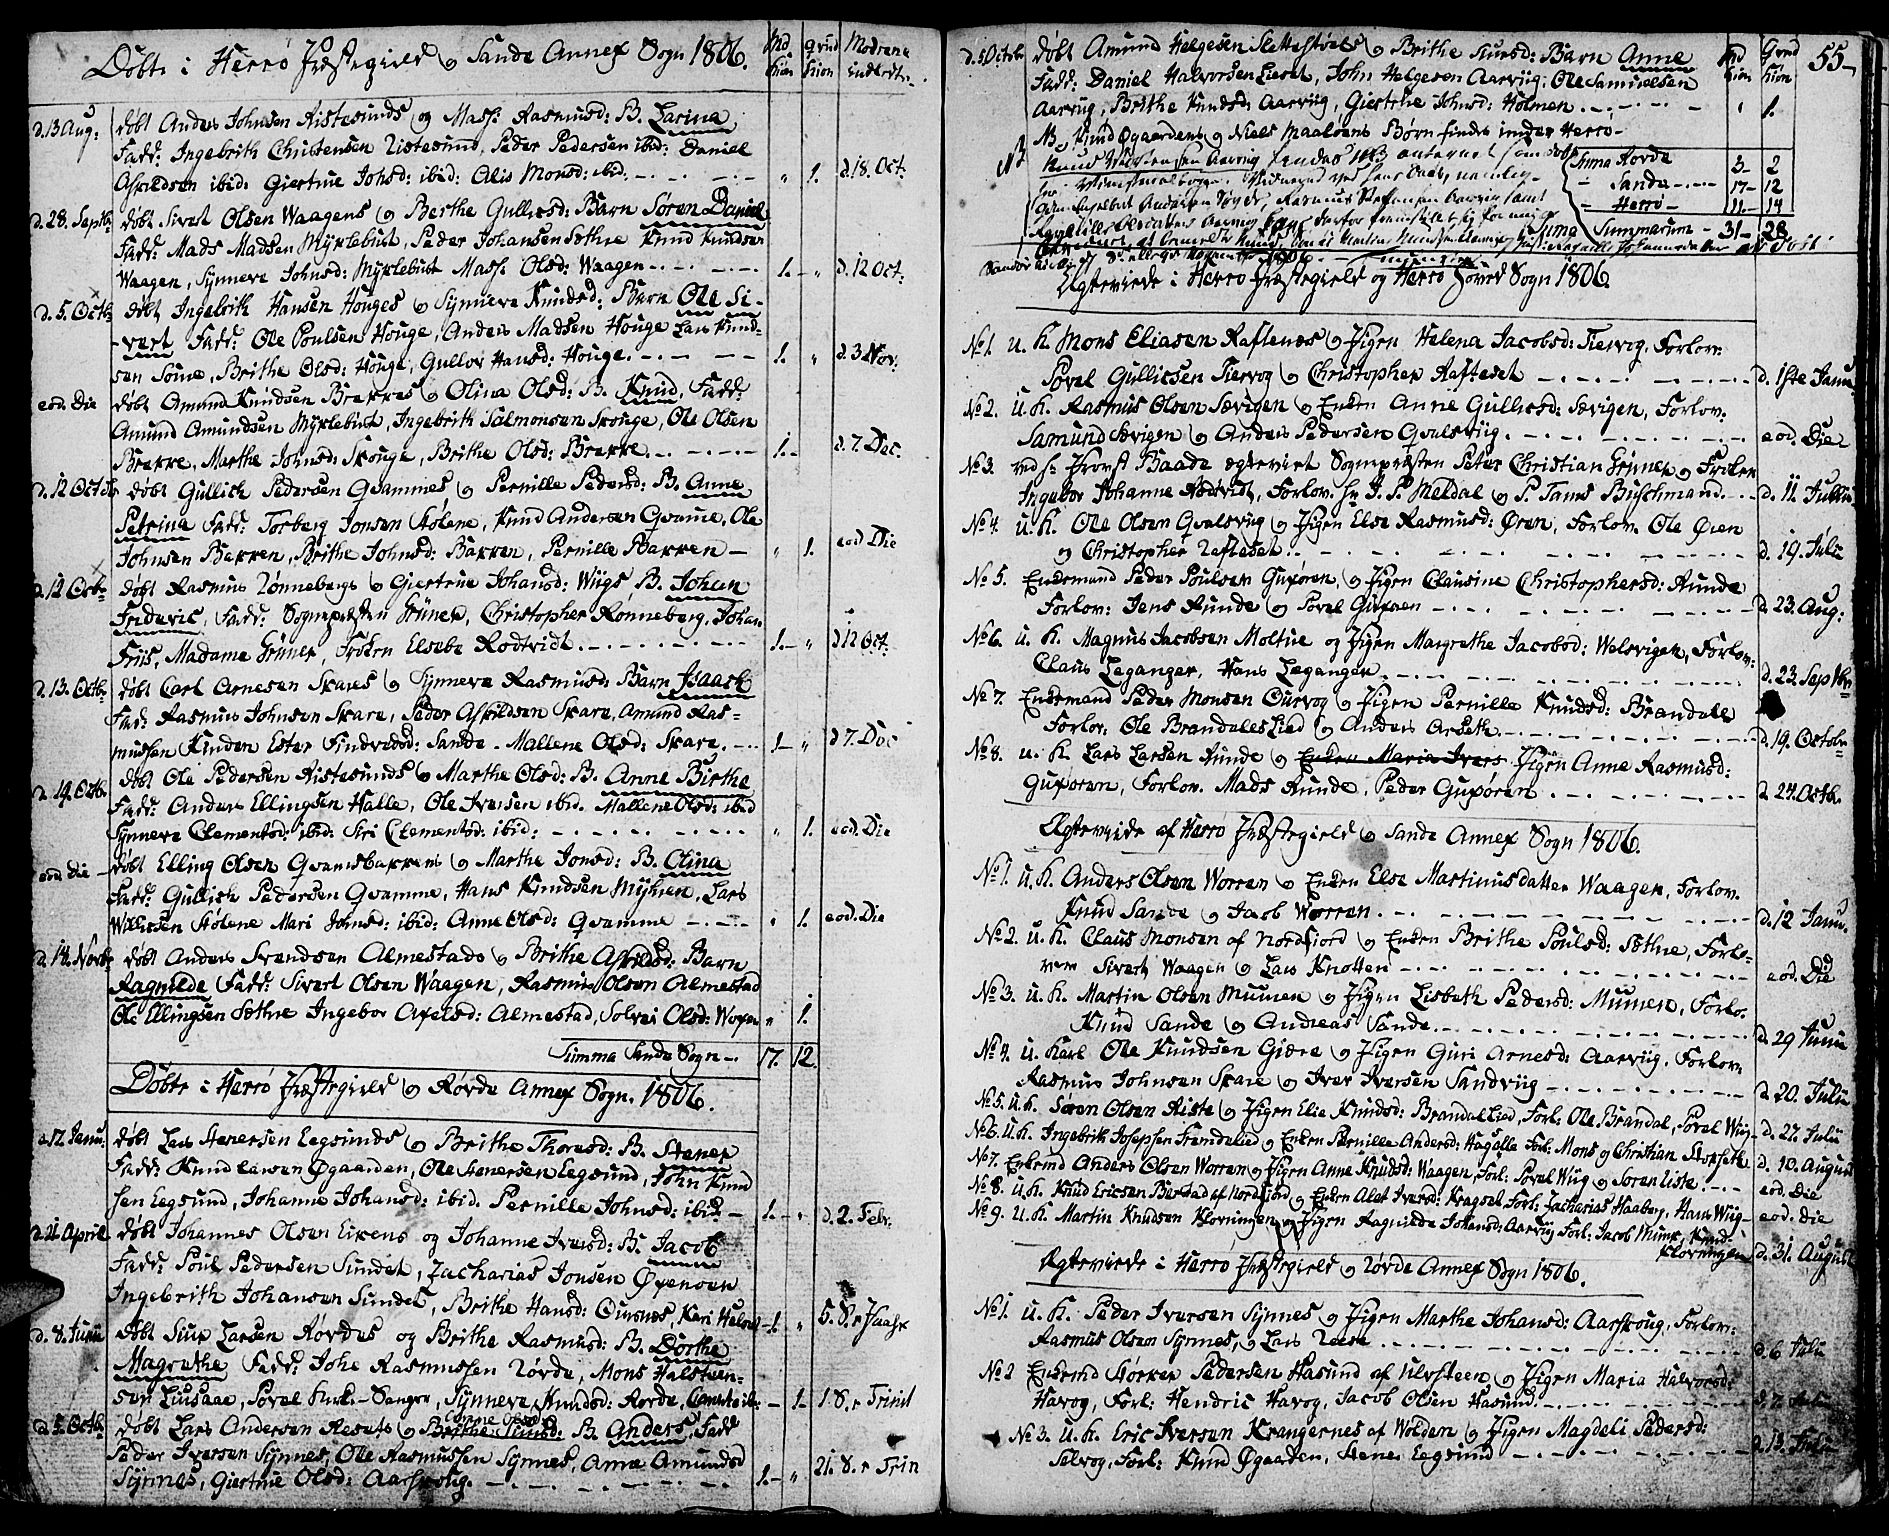 Döbte i Herrö Præstegield og Sande Annex Sogn 1806.
Modrene indledte.
d. 13 Aug: döbt Anders Johnsen Ristesunds og Mass: Rasmusd: B. Larina
Fadd: Ingebrith Christensen Ristesund, Peder Pedersen ibid: Daniel
Askildsen ibid: Giertrue Johsd: ibid: Alis Monsd: ibid. " 1. d. 18. Oct.
d. 28. Septb: döbt Sivert Olsen Waagens og Berthe Gullicsd: Barn Sören Daniel
Fadd: Mads Madsen Myklebust, Peder Johansen Sothne Knud Knudsen
Waagen, Synneve Johnsd: Myklebust Mass: Olsd: Waagen 1. " d. 12 Oct:
d. 5. Octb: döbt Ingebrith Hansen Houges og Synneve Knudsd: Barn Ole Si-
vert Fadd: Ole Poulsen Houge, Anders Madsen Houge Lars Knud-
sen Some, Brithe Olsd: Houge, Gullov Hansd: Houge. 1. " d. 3 Nov.
eod. Die döbt Amund Knudsen Brekkes og Olina Olsd: B. Knud, Fadd:
Amund Amundsen Myklebust, Ingebrith Salmonsen Skouge, Ole Olsen
Brekke, Marthe Johnsd: Skouge, Brithe Olsd: Brekke. 1. d. 7. Dec.
d. 12 Octob döbt Gullich Pedersen Gvammes og Pernille Pedersd: B. Anne
Petrina Fadd: Torberg Jonsen Stölene, Knud Andersen Gvame, Ole
Johnsen Bakken, Brithe Johnsd: Bakken, Pernille Bakken " 1. eod Die
d. 12 Octb: döbt Rasmus Rönnebergs og Giertrue Johansd: Wiigs, B. Johan
Frideric, Fadd: Sognepræsten Grüner, Christopher Rönneberg, Johan
Friis, Madame Grüner, Fröken Elsebe Rodtvidt. 1. " d 12 Oct:
d. 13. Octb: döbt Carl Arnesen Skares og Synneve Rasmusd: Barn Isaach
Fad: Rasmus Johnsen Skare, Peder Askildsen Skare, Amund Ras-
mussen Kinden Ester Sindredsd: Sande. Mallene Olsd: Skare. 1. " d 7. Dec
d. 19. Octb. döbt Ole Pedersen Ristesunds og Marthe Olsd: B. Anne Birthe
Fadd: Anders Ellingsen Halle, Ole Iversen ibid. Mallene Olsd: ibid
Synneve Clementsd: ibid: Siri Clementsd: ibid: " 1. eod. Die
eod Die döbt Elling Olsen Gvamsbakkens og Marthe Jonsd: B. Olina
Fadd: Gullich Pedersen Gvamme, Hans Knudsen Myhren, Lars
Willicsen Stölene Mari Johnsd: ibid: Anne Olsd: Gvamme " 1. eod. Die
d. 14. Novb: döbt Anders Svendsen Almestads og Brithe Askildsd: Barn
Ragnilde Fadd: Sivert Olsen Waagen, Rasmus Olsen Almestad
Ole Ellingsen Sothne Ingebor Axelsd: Almestad, Solvei Olsd: Woxen " 1.
Summa Sande Sogn 17. 12.
Döbte i Herrö Præstegield og Rövde Annex Sogn. 1806.
d 17. Janu. döbt Lars Stenersen Eegsunds og Brithe Thoresd: B. Stener
Fadd: Knud Larsen Øgaarden, Ole Stenersen Eegsund, John Knud
sen Eegsund, Johanne Johansd: ibid. Pernille Johnsd: ibid 1. " d. 2. Febr.
d. 21 April döbt Johannes Olsen Eikens og Johanne Iversd: B. Jacob
Fadd: Poul Pedersen Sundet, Zacharias Jonsen Øxensen
Ingebrith Johansen Sundet, Brithe Hansd: Ousnes, Kari Halsd 1. " 5. S. e Paask
d. 8. Juni döbt Siur Larsen Rövdes og Brithe Rasmusd: B. Dorthe
Magrethe Fadd: Johe Rasmussen Rövde, Mons Halsteen-
sen Liusaae, Povel Kirke-Sanger, Synneve Knudsd: Rövde, 1. 1. S. e Trinit
d 5. Octb. döbt Lars Andersen Aesets og Brithe Siursd: B. Anders, Fadd
Peder Iversen Synnes, Ole Rasmussen Synnes, Anne Amundsd
Synnes, Giertrue Olsd: Aarskoug. 1. " 21. S. e Trin
55
d. 5 Octbr döbt Amund Helgesen Slettestöels og Brithe Siursd: Barn Anne
Fadd: Daniel Halvorsen Lieset, John Helgesen Aarviig, Ole Samuelsen
Aarviig, Brithe Knudsd: Aarviig, Giertrue Johnsd: Holmen " 1.
NB. Knud Øgaardens og Niels Maalöens Börn findes under Herrö
Suma Rovde 3 2
Sande 17 12
Herrö 11. 14
Suma Summarum 31 28
Ægteviede i Herrö Præstegield og Herrö Hoved Sogn 1806
No 1. U. K. Mons Eliasen Raftenæs og Pigen Helena Jacobsd: Tiervog, Forlov:
Povel Gullicsen Tiervog og Christopher Rafteset d. 1ste Janu.
No 2. U. K. Rasmus Olsen Sævigen og Enken Anne Gullicsd: Sævigen, Forlov.
Samund Sævigen og Anders Pedersen Gvalsviig. eod. Die
No 3. ved Hr Provst Baade ægteviet Sognepræsten Peter Christian Grüner og Fröken
Ingebor Johanne Rodtvidt, Forlov. Hr J. P. Meldal og P. Tams Buschmand. d. 11. Julii
No 4. U. K. Ole Olsen Gvalsviig og Pigen Else Rasmusd: Øren, Forlov. Ole Øien
og Christopher Rafteset. d. 19. Julii
No 5. Enkemand Peder Poulsen Gurören, og Pigen Clausine Christophersd: Runde
Forlov: Jens Runde og Povel Gurören d. 23. Aug:
No 6. U. K. Magnus Jacobsen Moltue og Pigen Margrethe Jacobsd: Welsvigen, Forlov:
Claus Leganger, Hans Leganger d. 23. Septbr
No 7. Enkemand Peder Monsen Ourvog og Pigen Pernille Knudsd: Brandall
Forlov: Ole Brandales Lied og Anders Arseth. d. 19. Octobr
No 8. U. K. Lars Larsen Runde og Enken Maria Ivers Pigen Anne Rasmusd:
Gurören, Forlov. Mads Runde, Peder Gurören d 24. Octb.
Ægteviede af Herrö Præstegield og Sande Annex Sogn 1806.
No 1. U. K. Anders Olsen Worren og Enken Else Martinusdatter Waagen, Forlov.
Knud Sande og Jacob Worren. d. 12 Janu.
No 2. U. K. Claus Monsen af Nordfjord og Enken Brithe Poulsd: Sothne, Forlo-
vere Sivert Waagen og Lars Knotten eod. Die
No 3. U. K. Martin Olsen Muinen og Pigen Lisbeth Pedersd: Muinen, Forlo.
Knud Sande og Andreas Sande. d. 29 Junii
No 4. U. Karl Ole Knudsen Giære og Pigen Guri Arnesd: Aarviig, Forlov.
Rasmus Johnsen Skare og Iver Iversen Sandviig d. 20. Julii
No 5. U. K. Sören Olsen Riste og Pigen Elie Knudsd: Brandal Lied, Forl: Ole Brandal, Povel Wiig d. 27. Julii
No 6. U. K. Ingebrith Josephsen Fremdalie og Enken Pernille Andersd: Hagalle Forl: Mons og Christian Storseth d. 10. August
No 7. Enkemd Anders Olsen Worren og Pigen Anne Knudsd: Waagen, Forl: Povel Wiig og Soren Liste. eod. Die
No 8. U. K. Knud Ericsen Berstad af Nordfjord og Enken Alet Iversd: Kragset, Forl: Zacharias Haaberg, Hans Wiig eod. Die
No 9. U. K. Martin Knudsen Klovningen og Pigen Ragnilde Johansd: Aarviig Forl: Jacob Munk, Knud
Klovningen d. 31. August
Ægteviede i Herrö Præstegield og Rövde Annex Sogn 1806.
No 1. U. K. Peder Iversen Synnes og Pigen Marthe Johansd: Aarskoug, Forlov:
Rasmus Olsen Synnes, og Lars Reese d. 6 Julii
No 2 Enkemd Störker Pedersen Hasund af Ulvsteen og Pigen Maria Halvorsd:
Havog, Forl: Hendric Havog, Jacob Olsen Hasund. d. 7. Julii
No 3. U. K. Eric Iversen Krangernes af Wolden og Pigen Magdeli Pedersd:
Selvog, Forl: Knud Øgaarden, Stener Eegsund d. 13. Julii